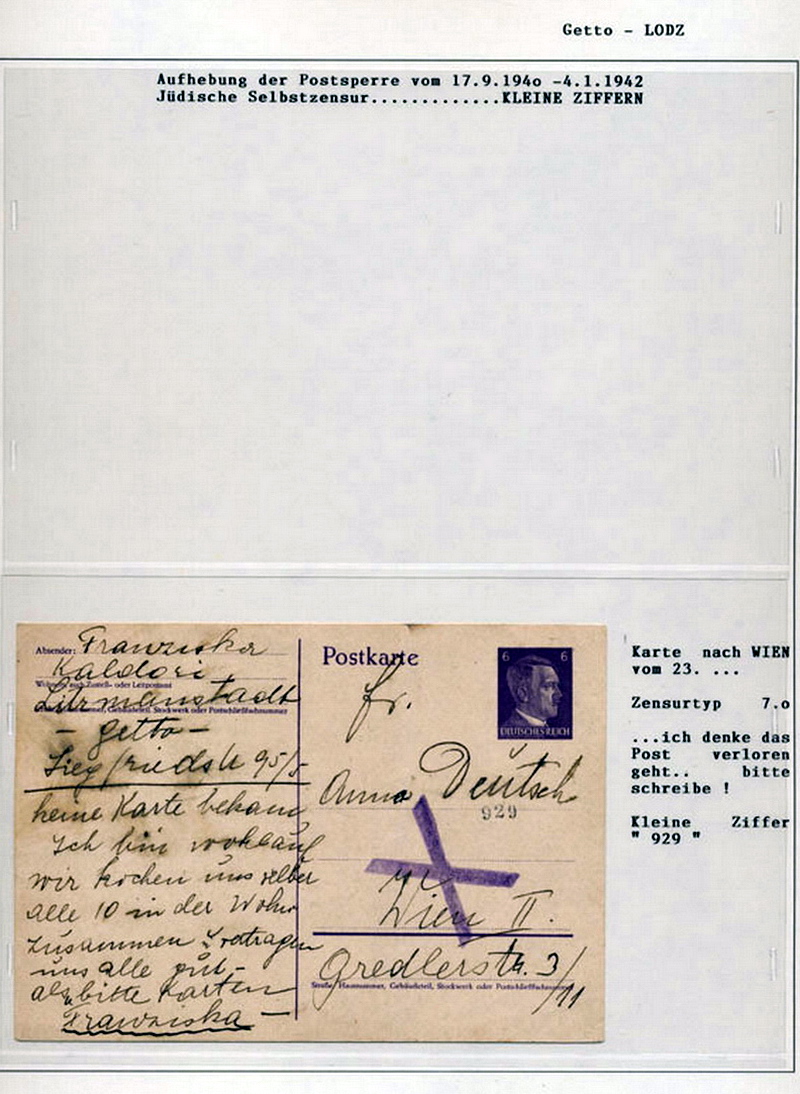 Getto - LODZ
Aufhebung der Postsperre vom 17.9.194o -4.1.1942
Jüdische Selbstzensur.............KLEINE ZIFFERN
Absender: Franziska
Kaldori
Wohnort, auch Zustell- oder Leitpostamt
Litzmannstadt
Straße, Hausnummer, Gebäudeteil, Stockwerk oder Postschließfachnummer
- getto -
Siegfriedstr 95/5
keine Karte bekam
Ich bin wohlauf
wir kochen uns selber
alle 10 in der Wohn
zusammen & vertragen
uns alle gut -
also bitte Karten
Franziska -
Postkarte
6 6
DEUTSCHES REICH
Fr.
Anna Deutsch
929
Wien II.
Gredlerstr. 3/11
Straße, Hausnummer, Gebäudeteil, Stockwerk oder Postschließfachnummer
Karte nach WIEN
vom 23. ...
Zensurtyp 7.o
...ich denke das
Post verloren
geht.. bitte
schreibe !
Kleine Ziffer
" 929 "